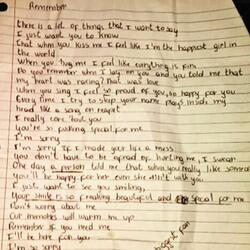 Remember
there is a lot of things that I want to say
I just want you to know
That when you kiss me I feel like I'm the happiest girl in
the world.
When you hug me I feel like everything is fine
Do you remember when I lay on you and you told me that
my heart was racing? That was love
When you sing I feel so proud of you, so happy for you
Every time I try to sleep your name plays inside my
head like a song on repeat
I really care 'bout you
You're so fucking special for me
I'm sorry
I'm sorry if I made your life a mess
You don't have to be afraid of hurting me, I swear
One day a person told me that when you really like someone
you'll be happy for her even she isn't with you
I just want to see you smiling
Your smile is so freaking beautiful and special for me
Don't worry about me
Our memories will warm me up
Remember if you need me
I'll be here for you
I'm so sorry